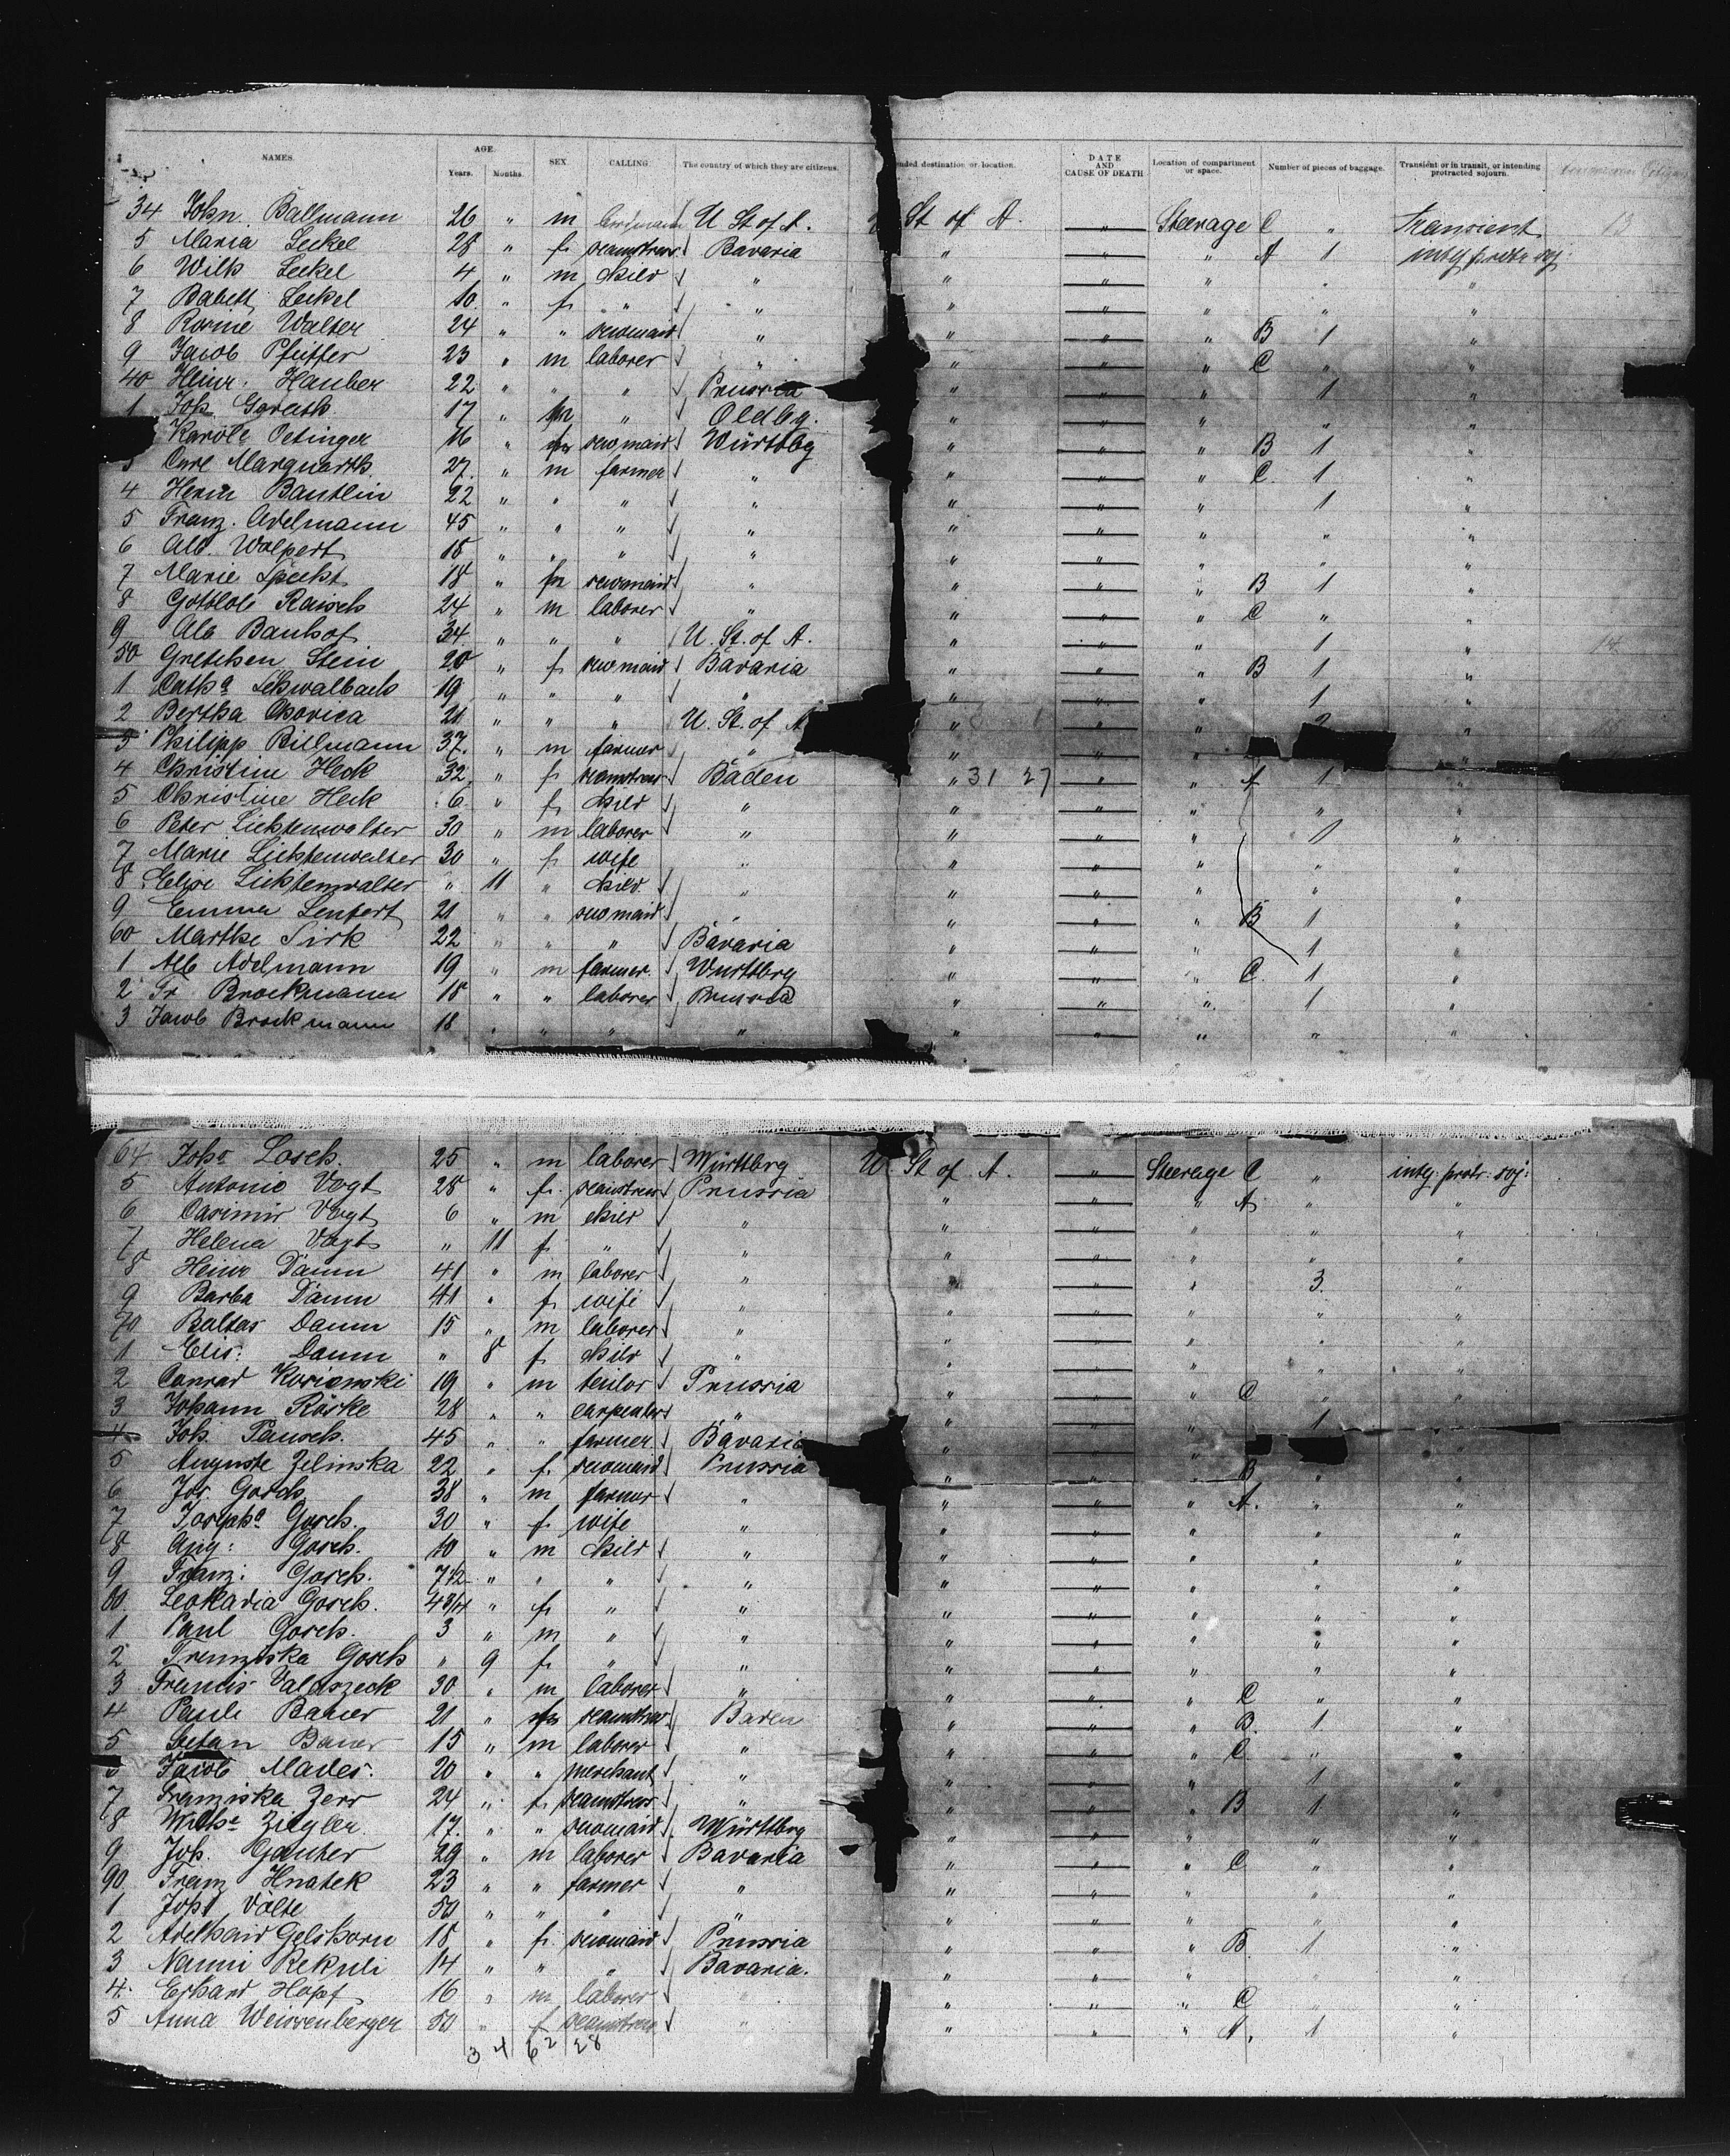 NAMES. AGE. Years. Months. SEX. CALLING. The country of which they are citizens. ended destination or location. DATE AND CAUSE OF DEATH Location of compartment or space. Number of pieces of baggage. Transient or in transit, or intending protracted sojourn.
34 John Ballmann 26 " m U St of A. St of A. " Steerage C " Transient 13
5 Maria Seckel 28 " f seamstress Bavaria " " " A 1 intg protr soj:
6 Wilh Seckel 4 " m child " " " " " "
7 Babett Seckel 10 " f " " " " " " "
8 Rosine Walter 24 " " sewmaid " " " " B 1 "
9 Jacob Pfeiffer 23 " m laborer " " " " C " "
40 Heinr. Hauber 22 " " " Prussia " " " 1 "
1 Joh Gerath 17 " m " Oldbg. " " " " "
Karole Oetinger 16 " f sewmaid Würtbg " " " B 1 "
3 Carl Marquarth 27 " m farmer " " " " C. 1 "
4 Herm Bantlin 22 " " " " " " " 1 "
5 Franz. Adelmann 45 " " " " " " " " "
6 Alb. Wolpert 18 " " " " " " " " "
7 Marie Specht 18 " f sewmaid " " " " B 1 "
8 Gottlob Raisch 24 " m laborer " " " " C " "
9 Alb Bauhof 34 " " " U. St. of A. " " " 1 " 14
50 Gretchen Stein 20 " f sewmaid Bavaria " " " B 1 "
1 Catha Schwalbach 19 " " " " " " " 1 "
2 Bertha 21 " " " U. St. of A " " " 2 "
3 Philipp Billmann 37. " m farmer " " " " "
4 Christine Heck 32 " f seamstress Baden " 31 27 " " A 1 "
5 Christine Heck 6 " f child " " " " " "
6 Peter Lichtenwalter 30 " m laborer " " " " 1 "
7 Marie Lichtenwalter 30 " f wife " " " " " "
8 Elise Lichtenwalter " 11 " child " " " " " "
9 Emma Lentert 21 " " sewmaid " " " " B 1 "
60 Marthe Sirk 22 " " " Bavaria " " " 1 "
1 Alb Adelmann 19 " m farmer. Wurttbrg " " " C. 1 "
2 Fr Brockmann 18 " " laborer Prussia " " " 1 "
3 Jacob Brockmann 18 " " " " " " " " "
64 Joha Losch. 25 " m laborer Württbrg U. St of A. " Steerage C " intg: protr: soj:
5 Antonio Vogt 28 " f. seamstress Prussia " " " A " "
6 Casimir Vogt 6 " m child " " " " " "
7 Helena Vogt " 11 f " " " " " " "
8 Heinr Damm 41 " m laborer " " " " 3. "
9 Barba Damm 41 " f wife " " " " " "
70 Baltas Damm 15 " m laborer " " " " " "
1 Elis: Damm " 8 f child " " " " " "
2 Conrad Kosianski 19 " m teilor Prussia " " " C " "
3 Johann Röske 28 " " carpenter " " " " 1 "
4 Joh Pausch. 45 " " farmer Bavaria " " " "
5 Auguste Zelinska 22 " f. sewmaid Prussia " " " B " "
6 Jos Gorch 38 " m farmer " " " " A. " "
7 Josepha Gorch. 30 " f wife " " " " " "
8 Aug: Gorch. 10 " m child " " " " " "
9 Franz: Gorch. 7 1/2 " " " " " " " " "
80 Leokadia Gorch. 4 3/4 " f " " " " " " "
1 Paul Gorch. 3 " m " " " " " " "
2 Franziska Gorch " 9 f " " " " " " "
3 Francis Valdszeck 30 " m laborer " " " " C " "
4 Pauli Bauer 21 " f seamstress Baden " " " B. 1 "
5 Stefan Bauer 15 " m laborer " " " " C. " "
Jacob Mades. 20 " " merchant " " " " 1 "
7 Franziska Zerr 24 " f seamstress " " " " B 1 "
8 Wilha Ziegler. 17. " " sewmaid Württbrg " " " " "
9 Joh. Ganter 29 " m laborer Bavaria " " " C " "
90. Franz Hnatek 23 " " farmer " " " " " "
1 Joh Völte 50 " " " " " " " " "
2 Adelhaid Gelshorn 18 " f. sewmaid Prussia " " " B. 1 "
3 Nanni Rekuli 14 " " " Bavaria. " " " " "
4. Erhard Hopf 16 " m laborer " " " " C " "
5 Anna Weissenberger 50 " f seamstress " " " " A. 1 "
34 62 28